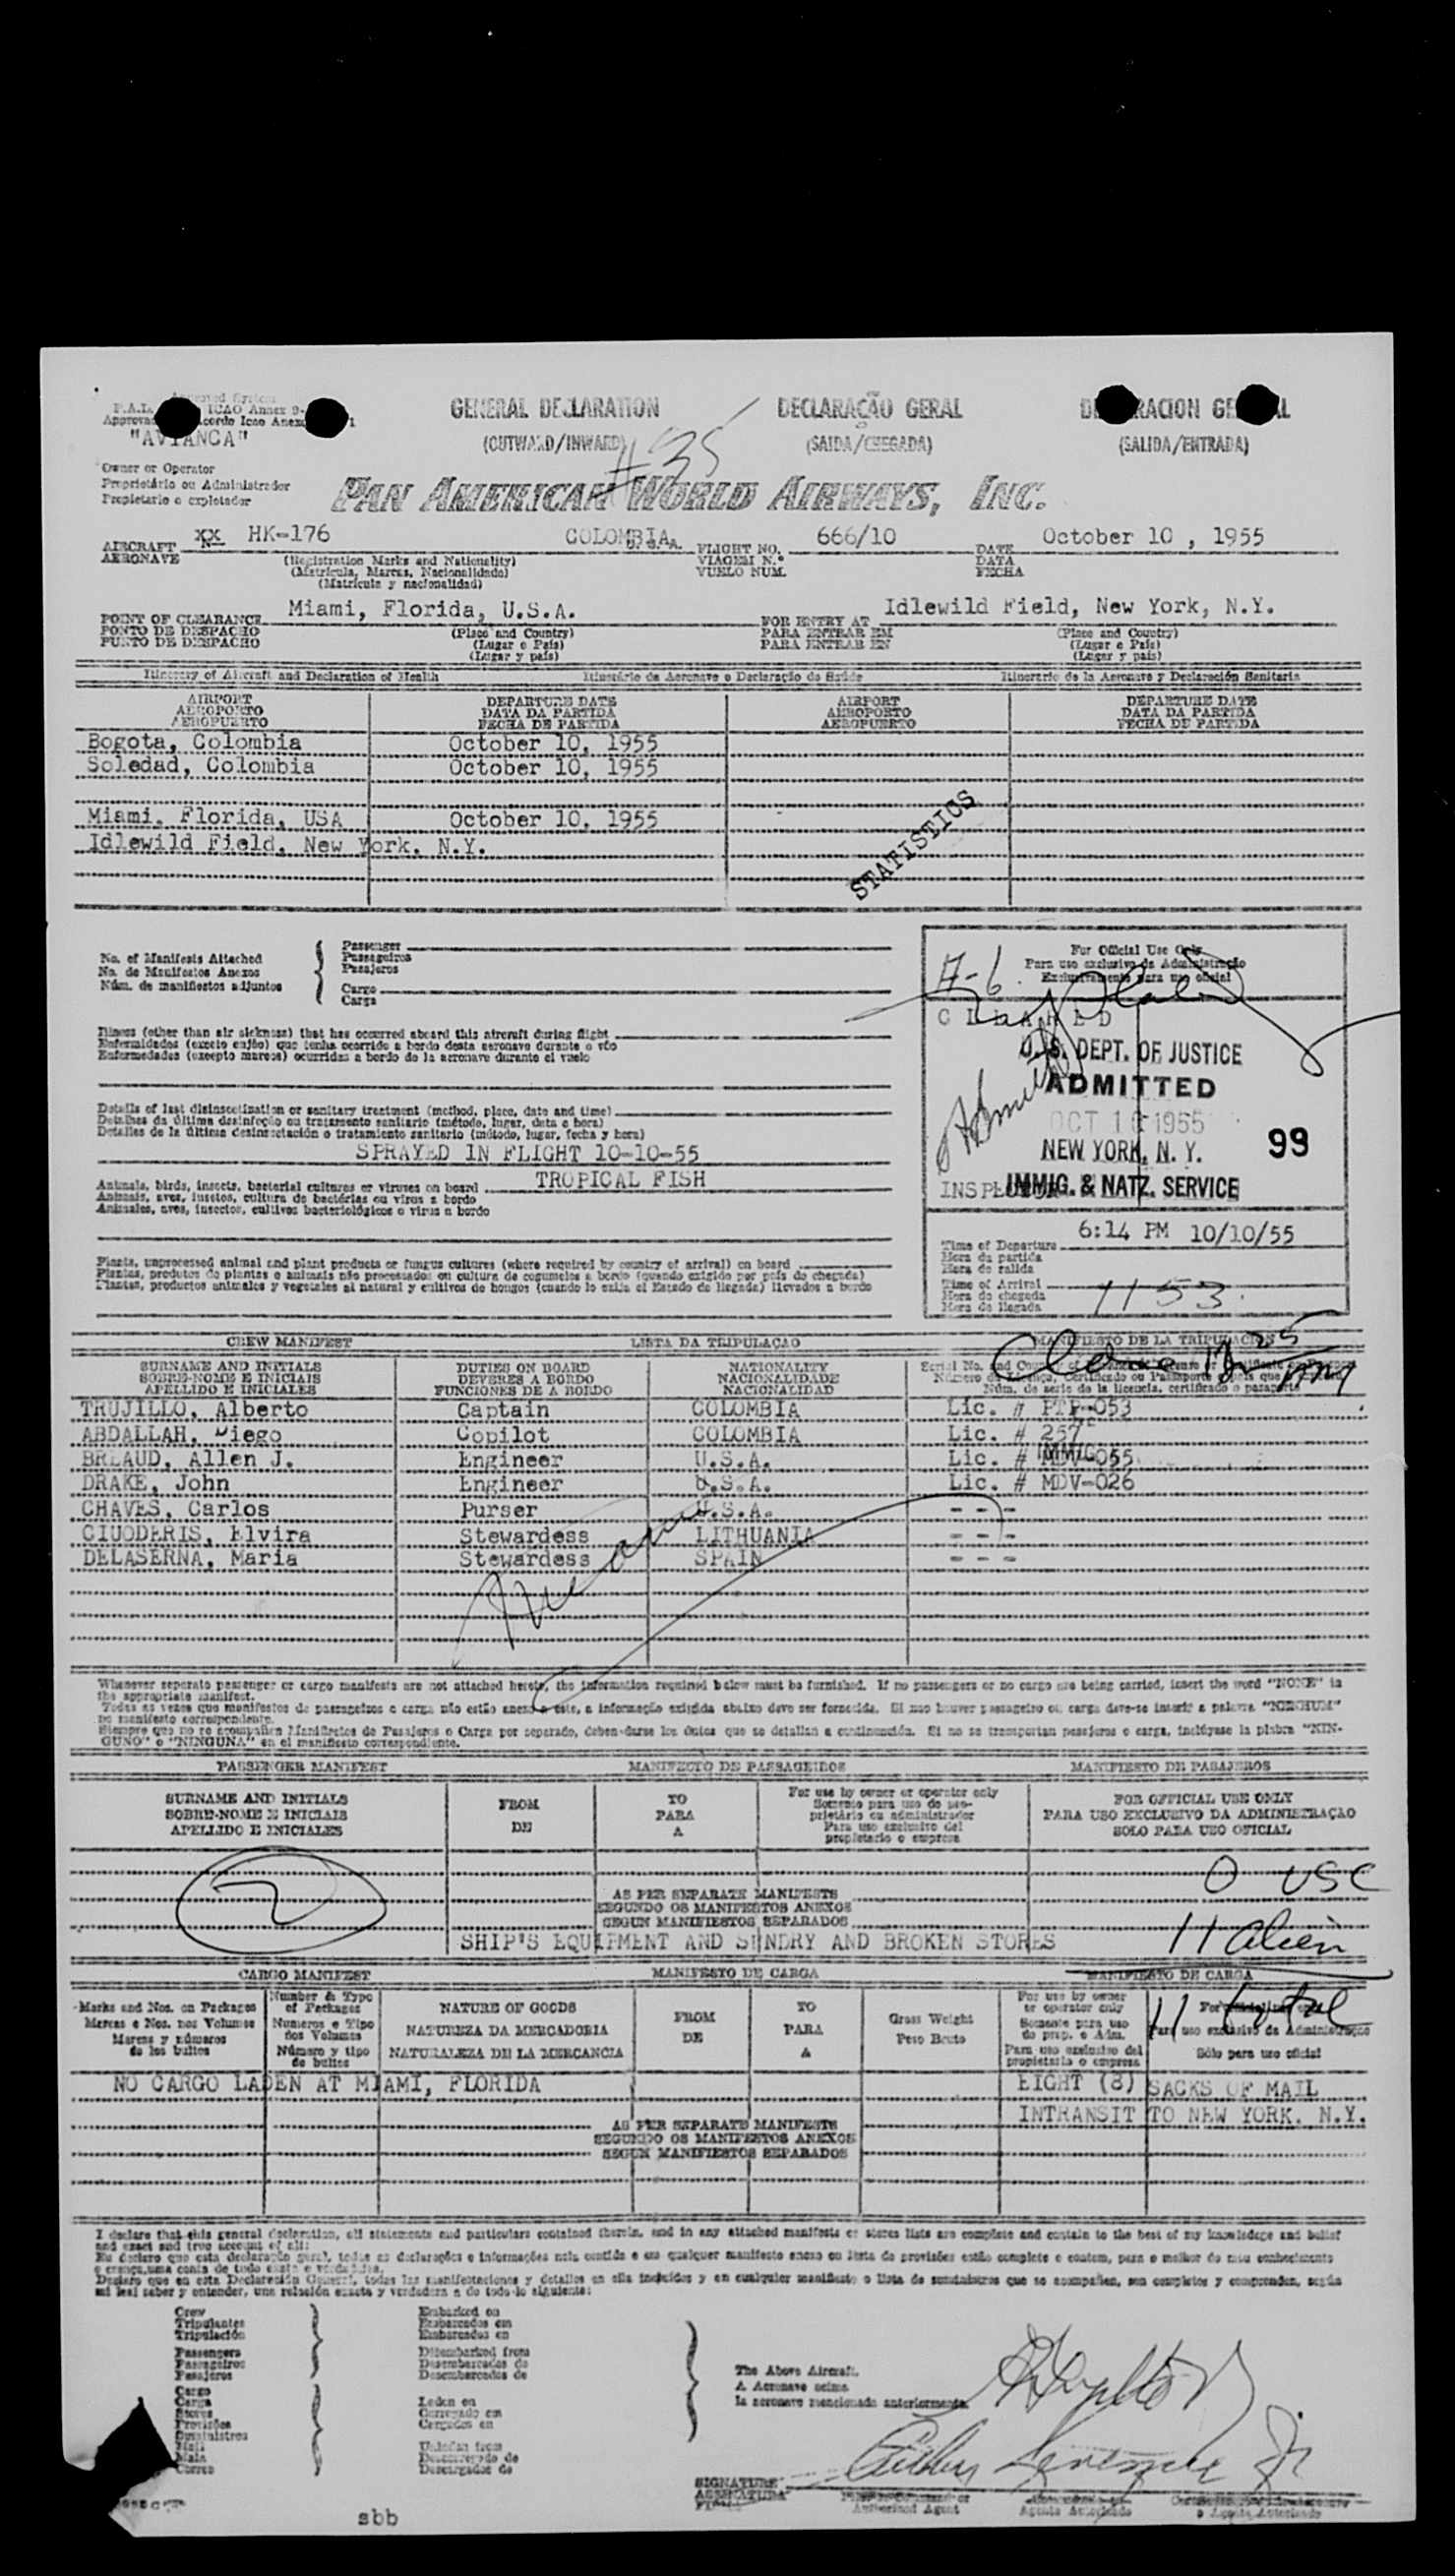 GENERAL DECLARATION DECLARAÇÃO GERAL
(OUTWARD/INWARD) (SAIDA/CHEGADA) (SALIDA/ENTRADA)
"AVIANCA"
#35
Owner or Operator
Proprietário ou Administrador
Propietario o explotador
PAN AMERICAN WORLD AIRWAYS, INC.
AIRCRAFT xx HK-176 COLOMBIA FLIGHT NO. 666/10 DATE October 10, 1955
AERONAVE (Registration Marks and Nationality) VIAGEM N.º DATA
(Matrícula, Marcas, Nacionalidade) VUELO NUM. FECHA
(Matrícula y nacionalidad)
POINT OF CLEARANCE Miami, Florida, U.S.A. FOR ENTRY AT Idlewild Field, New York, N.Y.
PONTO DE DESPACHO (Place and Country) PARA ENTRAR EM (Place and Country)
PUNTO DE DESPACHO (Lugar e País) PARA ENTRAR EN (Lugar e País)
(Lugar y país) (Lugar y país)
Itinerary of Aircraft and Declaration of Health Itinerário da Aeronave e Declaração de Saúde Itinerario de la Aeronave y Declaración Sanitaria
AIRPORT DEPARTURE DATE AIRPORT DEPARTURE DATE
AEROPORTO DATA DA PARTIDA AEROPORTO DATA DA PARTIDA
AEROPUERTO FECHA DE PARTIDA AEROPUERTO FECHA DE PARTIDA
Bogota, Colombia October 10, 1955
Soledad, Colombia October 10, 1955
Miami, Florida, USA October 10, 1955
Idlewild Field, New York, N.Y.
STATISTICS
No. of Manifests Attached Passenger
No. de Manifestos Anexos Passageiros
Núm. de manifiestos adjuntos Pasajeros
Cargo
Carga
For Official Use Only
Para uso exclusivo da Administração
Exclusivamente para uso oficial
17-6
CLEARED
U.S. DEPT. OF JUSTICE
ADMITTED
OCT 10 1955
NEW YORK, N. Y. 99
IMMIG. & NATZ. SERVICE
Illness (other than air sickness) that has occurred aboard this aircraft during flight
Enfermidades (exceto enjôo) que tenha ocorrido a bordo desta aeronave durante o vôo
Enfermedades (excepto mareos) ocurridas a bordo de la aeronave durante el vuelo
Details of last disinsectization or sanitary treatment (method, place, date and time)
Detalhes da última desinfeção ou tratamento sanitario (método, lugar, data e hora)
Detalles de la última desinsectación o tratamiento sanitario (método, lugar, fecha y hora)
SPRAYED IN FLIGHT 10-10-55
Animals, birds, insects, bacterial cultures or viruses on board TROPICAL FISH
Animais, aves, insetos, cultura de bactérias ou virus a bordo
Animales, aves, insectos, cultivos bacteriológicos o virus a bordo
Plants, unprocessed animal and plant products or fungus cultures (where required by country of arrival) on board
Plantas, produtos de plantas e animais não processados ou cultura de cogumelos a bordo (quando exigido por país de chegada)
Plantas, productos animales y vegetales al natural y cultivos de hongos (cuando lo exija el Estado de llegada) llevados a bordo
Time of Departure 6:14 PM 10/10/55
Hora da partida
Hora de salida
Time of Arrival 1153
Hora de chegada
Hora de llegada
CREW MANIFEST LISTA DA TRIPULAÇAO MANIFIESTO DE LA TRIPULACION
SURNAME AND INITIALS DUTIES ON BOARD NATIONALITY
SOBRE-NOME E INICIAIS DEVERES A BORDO NACIONALIDADE
APELLIDO E INICIALES FUNCIONES DE A BORDO NACIONALIDAD Núm. de serie de la licencia, certificado o pasaporte
TRUJILLO, Alberto Captain COLOMBIA Lic. # PTP-053
ABDALLAH, Diego Copilot COLOMBIA Lic. # 257
BREAUD, Allen J. Engineer U.S.A. Lic. # 055
DRAKE, John Engineer U.S.A. Lic. # MDV-026
CHAVES, Carlos Purser U.S.A. - - -
CIUODERIS, Elvira Stewardess LITHUANIA - - -
DELASERNA, Maria Stewardess SPAIN - - -
Whenever separate passenger or cargo manifests are not attached hereto, the information required below must be furnished. If no passengers or no cargo are being carried, insert the word "NONE" in
the appropriate manifest.
Todas as vezes que manifestos de passageiros e carga não estão anexo a este, a informação exigida abaixo deve ser fornecida. Si nao houver passageiro ou carga deve-se inserir a palavra "NENHUM"
no manifesto correspondente.
Siempre que no se acompañen Manifiestos de Pasajeros o Carga por separado, deben darse los datos que se detallan a continuación. Si no se transportan pasajeros o carga, inclúyase la plabra "NIN-
GUNO" o "NINGUNA" en el manifiesto correspondiente.
PASSENGER MANIFEST MANIFESTO DE PASSAGEIROS MANIFIESTO DE PASAJEROS
SURNAME AND INITIALS FROM TO For use by owner or operator only FOR OFFICIAL USE ONLY
SOBRE-NOME E INICIAIS DE PARA Somente para uso do pro- PARA USO EXCLUSIVO DA ADMINISTRAÇAO
APELLIDO E INICIALES A prietário ou administrador SOLO PARA USO OFICIAL
Para uso exclusivo del
propietario o empresa
0 USC
AS PER SEPARATE MANIFESTS
SEGUNDO OS MANIFESTOS ANEXOS
SEGUN MANIFIESTOS SEPARADOS
11 alien
SHIP'S EQUIPMENT AND SUNDRY AND BROKEN STORES
CARGO MANIFEST MANIFESTO DE CARGA MANIFIESTO DE CARGA
11 total
Marks and Nos. on Packages Number & Type of Packages NATURE OF GOODS FROM TO Gross Weight For use by owner or operator only
Marcas e Nos. nos Volumes Numeros e Tipo dos Volumes NATUREZA DA MERCADORIA DE PARA Peso Bruto Somente para uso do prop. e Adm. Para uso exclusivo da Administração
Marcas y números de los bultos Número y tipo de bultos NATURALEZA DE LA MERCANCIA A Para uso exclusivo del propietario o empresa Sólo para uso oficial
NO CARGO LADEN AT MIAMI, FLORIDA EIGHT (8) SACKS OF MAIL
INTRANSIT TO NEW YORK. N.Y.
AS PER SEPARATE MANIFESTS
SEGUNDO OS MANIFESTOS ANEXOS
SEGUN MANIFIESTOS SEPARADOS
I declare that this general declaration, all statements and particulars contained therein, and in any attached manifests or stores lists are complete and contain to the best of my knowledge and belief
and exact and true account of all:
Crew Embarked on
Tripulantes Embarcados em
Tripulación Embarcados en
Passengers Disembarked from
Passageiros Desembarcados de
Pasajeros Desembarcados de
Cargo
Carga Laden on
Stores Carregado em
Provisões Cargados en
Suministros
Mail Unladen from
Mala Descarregado de
Correo Descargados de
The Above Aircraft.
A Aeronave acima
la aeronave mencionada anteriormente
SIGNATURE
ASSINATURA
Authorized Agent
sbb